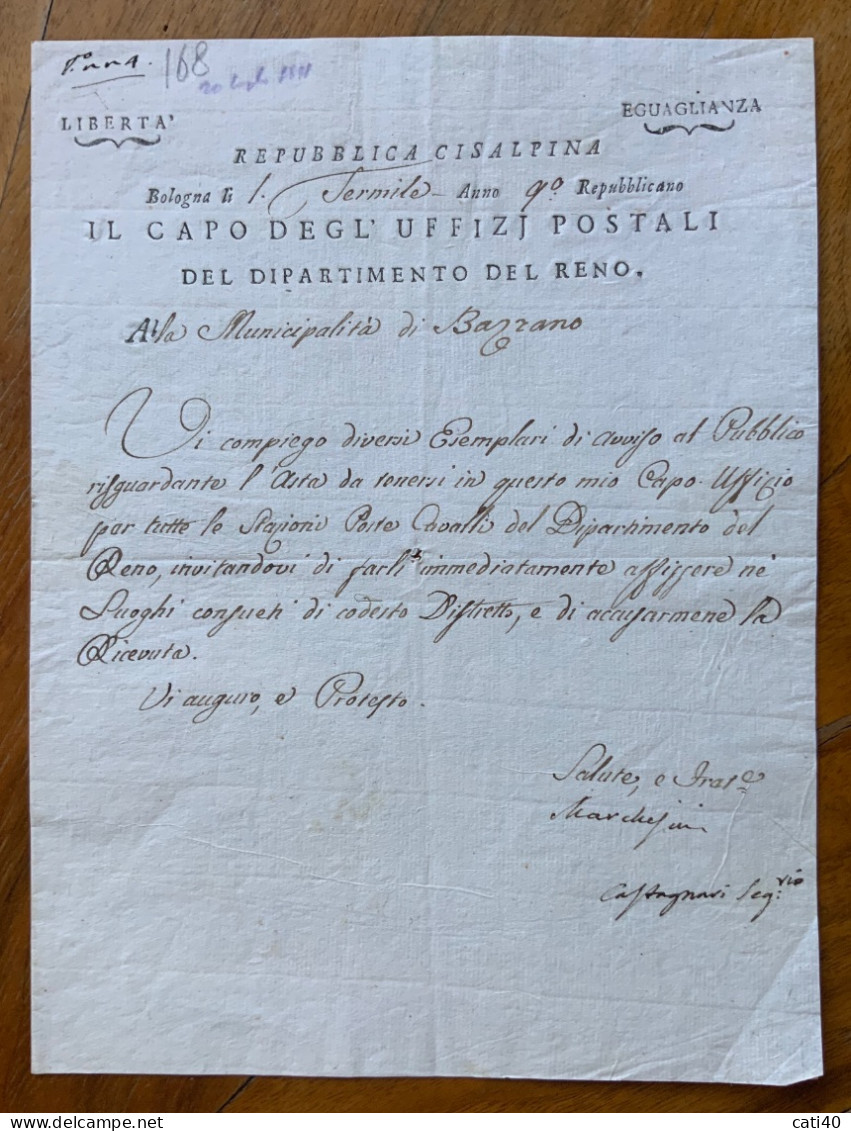 168
LIBERTA'
EGUAGLIANZA
REPUBBLICA CISALPINA
Bologna li 1. Termile Anno 9º Repubblicano
IL CAPO DEGL' UFFIZJ POSTALI
DEL DIPARTIMENTO DEL RENO.
Alla Municipalità di Bazzano
Vi compiego diversi Esemplari di Avviso al Pubblico
risguardante l'Asta da tenersi in questo mio Capo-Uffizio
per tutte le Stazioni Poste Cavalli del Dipartimento del
Reno, invitandovi di farli immediatamente affiggere ne'
Luoghi consueti di codesto Distretto, e di accusarmene la
Ricevuta.
Vi auguro, e Protesto.
Salute, e Frat.e
Marchesini
Castagnari Seg.rio
cati40